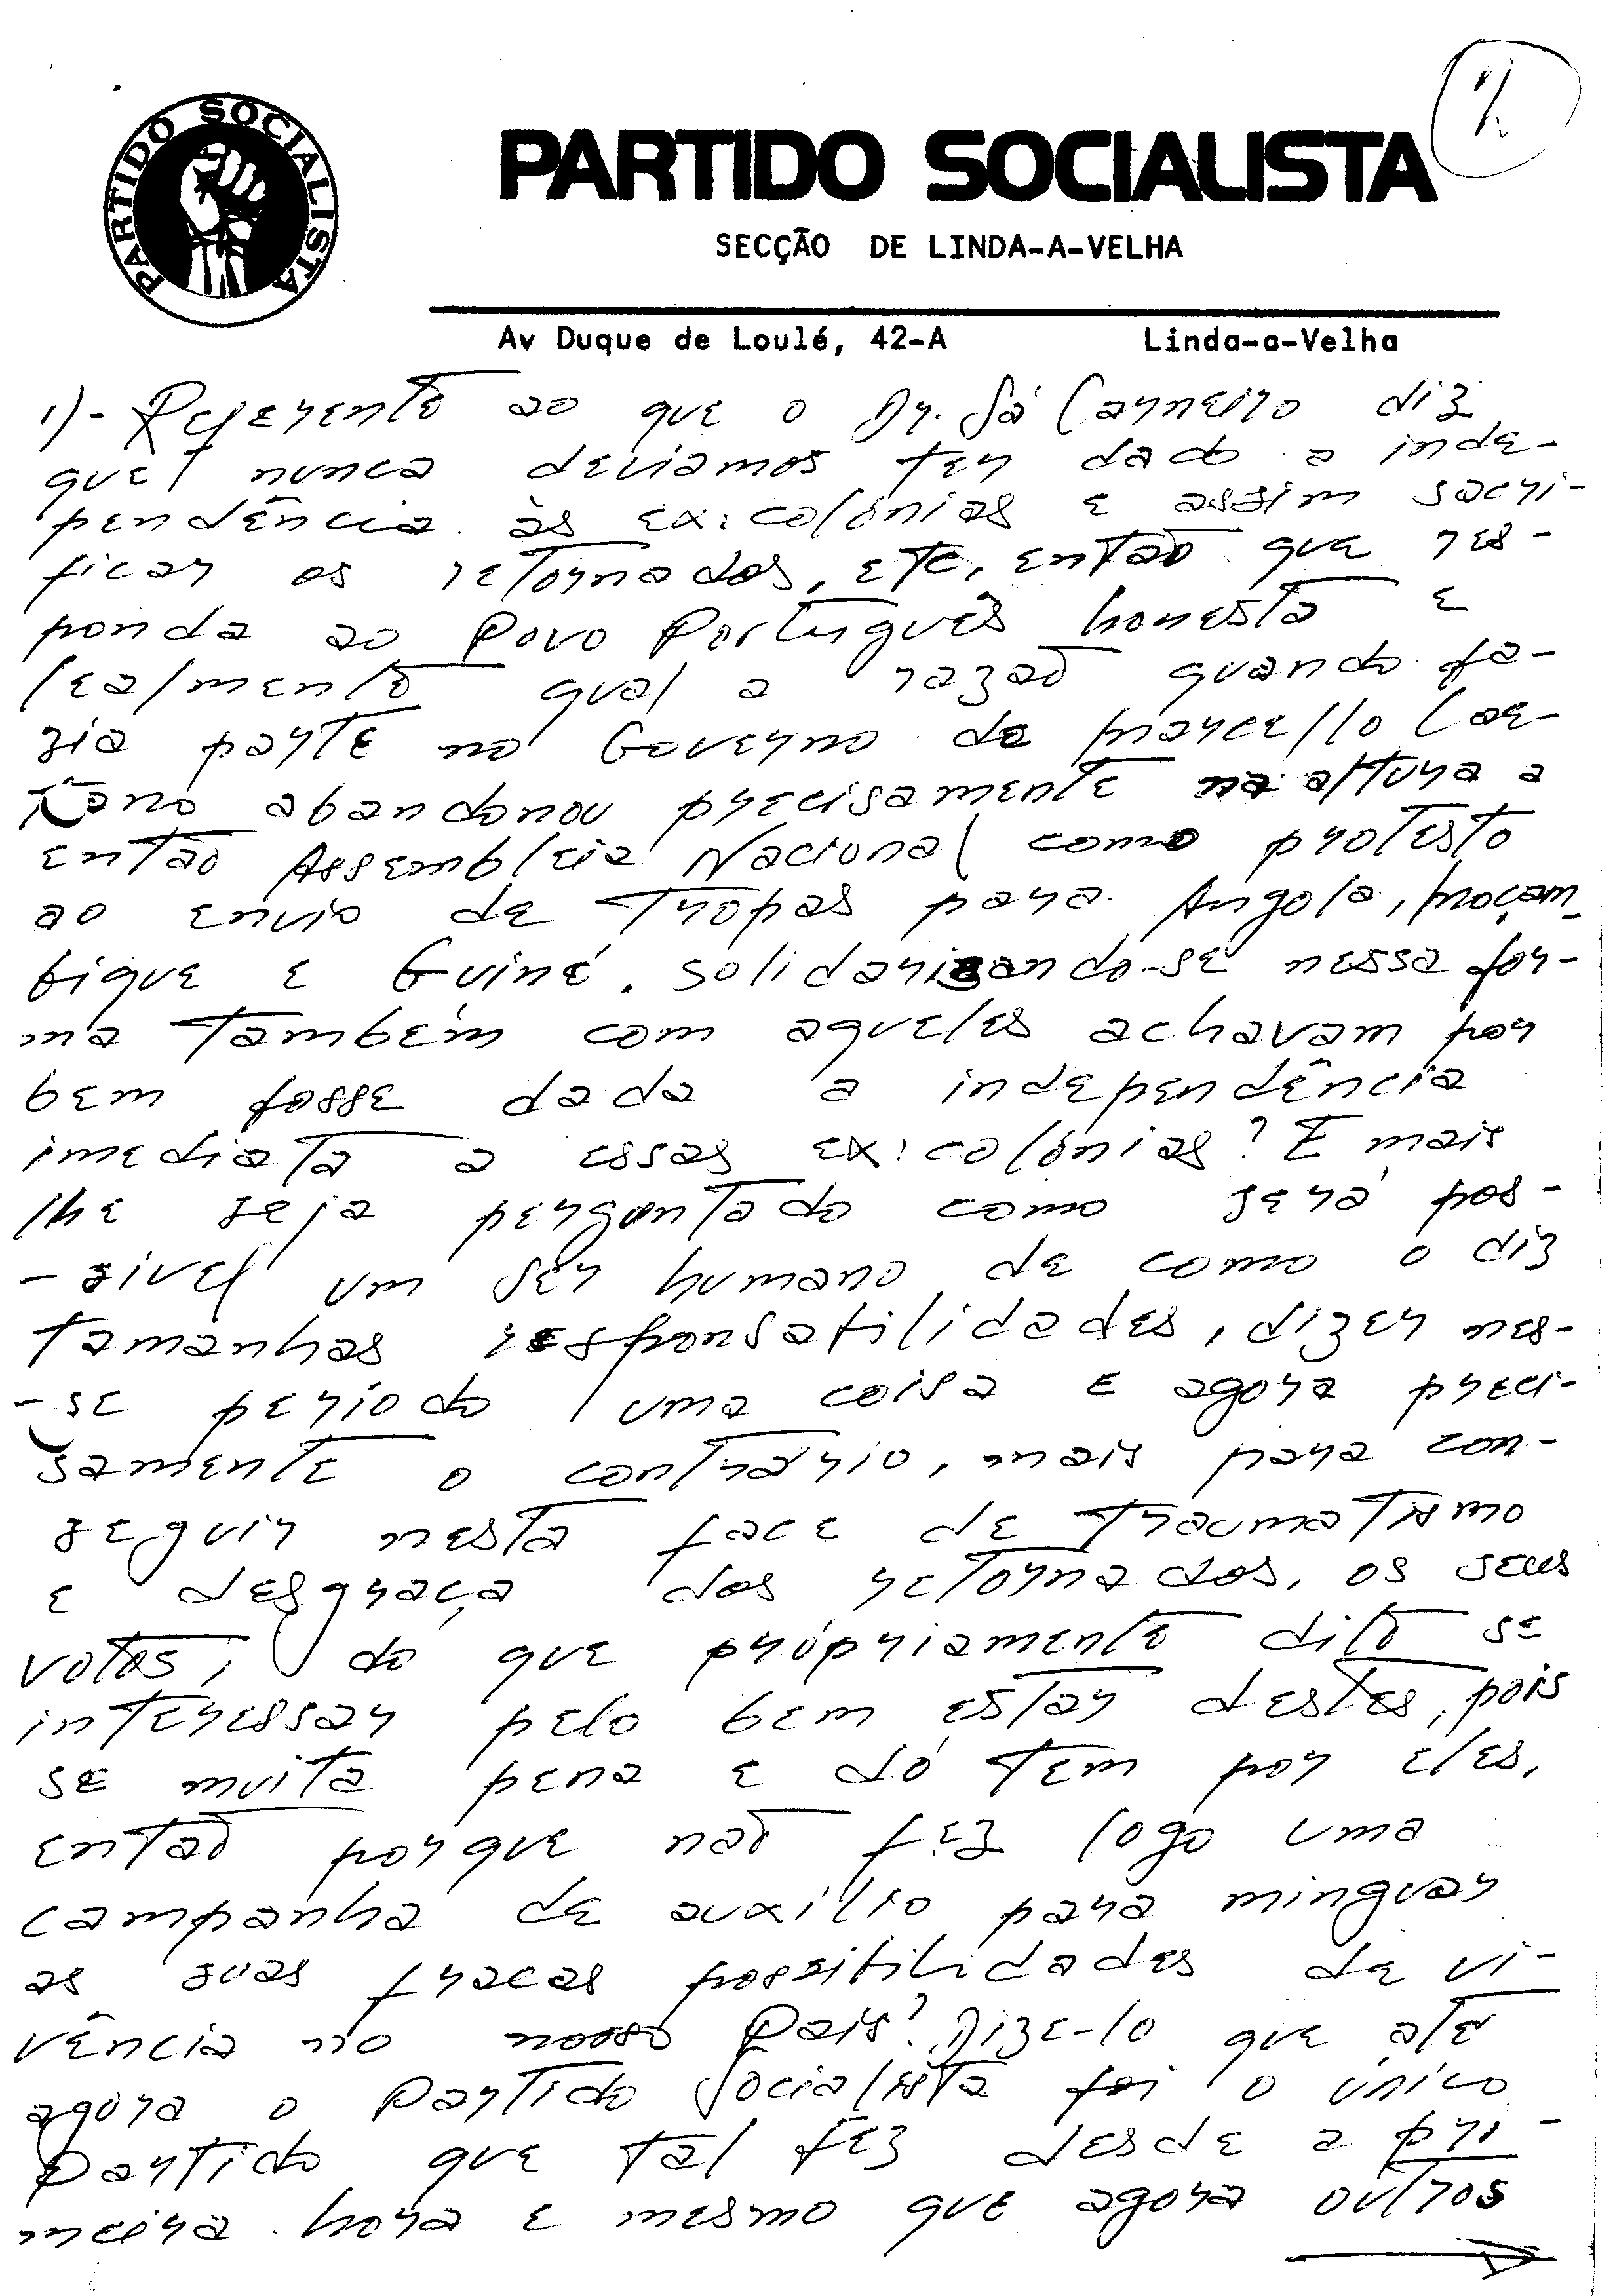 PARTIDO SOCIALISTA
PARTIDO SOCIALISTA
SECÇÃO DE LINDA-A-VELHA
Av Duque de Loulé, 42-A Linda-a-Velha
1)- Referente ao que o Dr. Sá Carneiro diz
que nunca deviamos ter dado a inde-
pendência às ex:colónias e assim sacri-
ficar os retornados, etc, então que res-
ponda ao Povo Português honesta e
lealmente qual a razão quando fa-
zia parte no Governo de Marcello Cae-
tano abandonou precisamente na altura a
então Assembleia Nacional como protesto
ao envio de Tropas para Angola, Moçam-
bique e Guiné, solidarizando-se nessa for-
ma também com aqueles achavam por
bem fosse dada a independência
imediata a essas ex:colónias? E mais
lhe seja perguntado como será pos-
-sivel um ser humano de como o diz
tamanhas responsabilidades, dizer nes-
-se periodo uma coisa e agora preci-
samente o contrário, mais para con-
seguir nesta face de traumatismo
e desgraça dos retornados, os seus
votos, do que própriamente dito se
interessar pelo bem estar destes, pois
se muita pena e dó tem por eles,
então porque não fez logo uma
campanha de auxílio para minguar
as suas fracas possibilidades de vi-
vência no nosso Pais? Dize-lo que até
agora o Partido Socialista foi o único
Partido que tal fez desde a pri-
meira hora e mesmo que agora outros